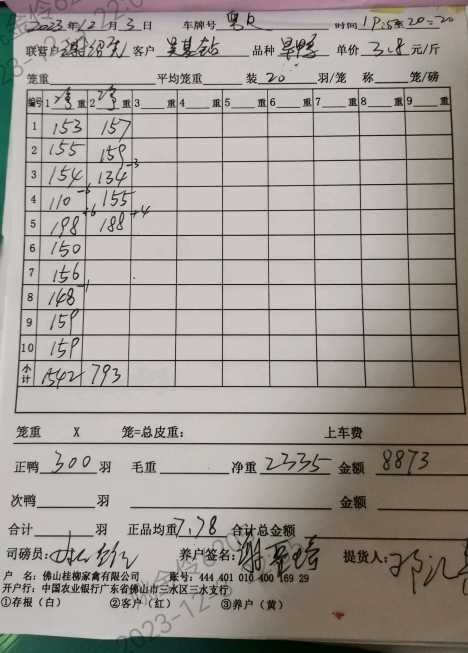 2023年12月3日 车牌号 粤 时间 19:5 20:20
联营户 谢绍 客户 吴基 品种 旱鸭 单价 3.8 元/斤
笼重 平均笼重 装 20 羽/笼 称 笼/磅
编号 1 净 重 2 净 重 3 重 4 重 5 重 6 重 7 重 8 重 9 重
1 153 157
2 155 159
3 154 134 -3
4 110 -6 155
5 198 +6 188 +4
6 150
7 156
8 148 -1
9 159
10 159
小计 1542 793
笼重 X 笼=总皮重: 上车费
正鸭 300 羽 毛重 净重 2335 金额 8873
次鸭 羽 金额
合计 羽 正品均重 7.78 合计总金额
司磅员: 养户签名: 谢 提货人: 邓
户 名: 佛山桂柳家禽有限公司 账号: 444 401 010 400 169 29
开户行: 中国农业银行广东省佛山市三水区三水支行
①存根(白) ②客户(红) ③养户(黄)